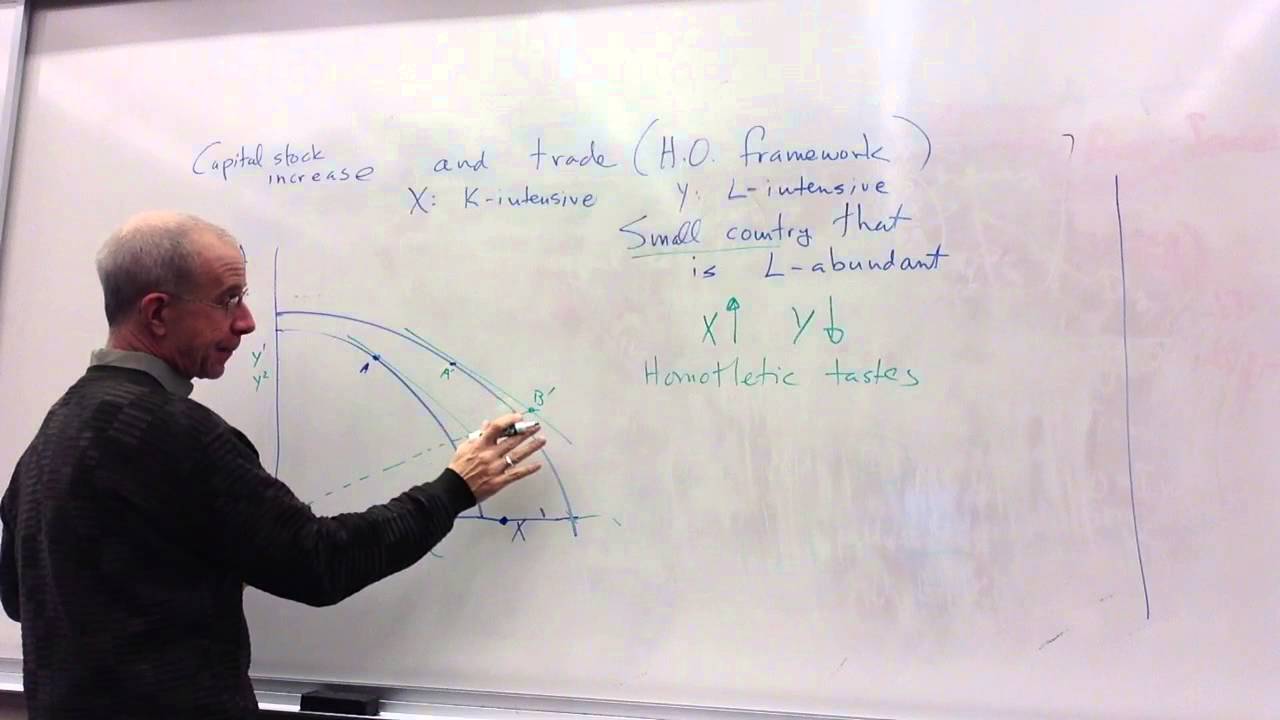 Capital stock increase and trade (H.O. framework)
X: K-intensive Y: L-intensive
Small country that
is L-abundant
X↑ Y↓
Homotletic tastes
y'
y²
A
A'
B'
X